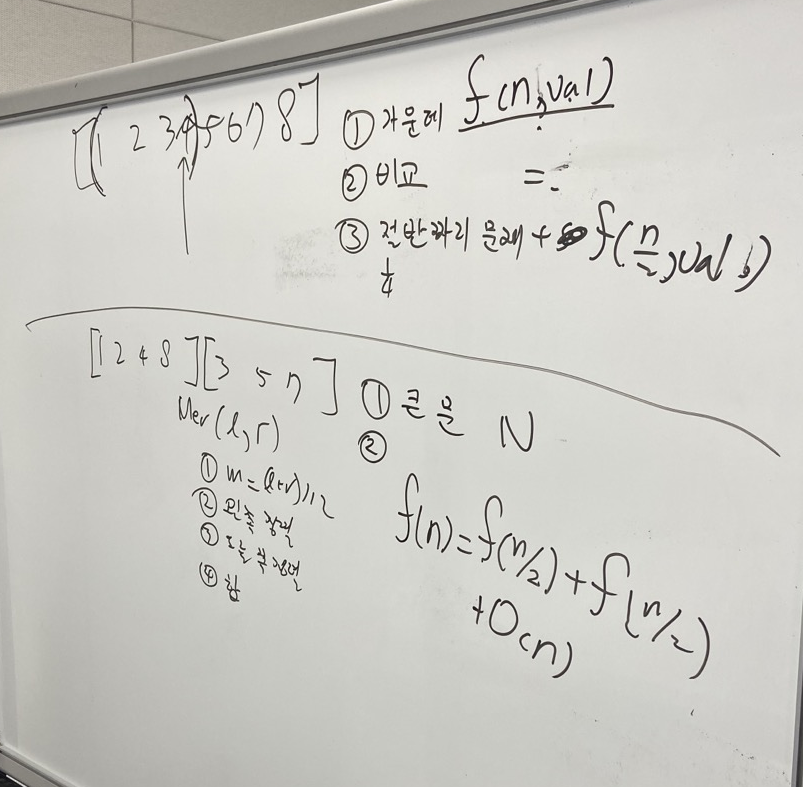 [[1 2 3 4) 5 6 7 8]
f(n, val)
① 가운데
② 비교 =
③ 절반짜리 문제 + f(n/2, val)
1/4
[1 2 4 8] [3 5 7]
① 큰 문 N
②
Mer(l, r)
① m = (l+r)//2
② 왼쪽 정렬
③ 오늘쪽 정렬
④ 합
f(n) = f(n/2) + f(n/2)
+ O(n)